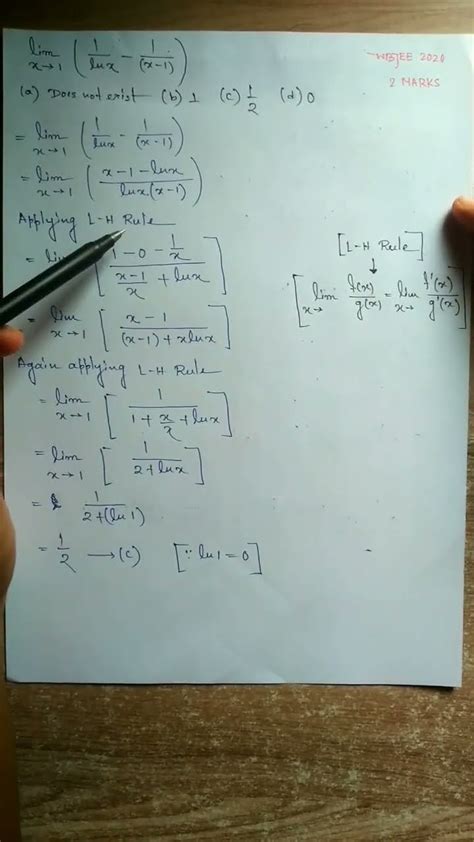 lim x→1 (1/lnx - 1/(x-1))
WBJEE 2020
2 MARKS
(a) Does not exist (b) 1 (c) 1/2 (d) 0
= lim x→1 (1/lnx - 1/(x-1))
= lim x→1 (x-1-lnx / lnx(x-1))
Applying L-H Rule
= lim [1-0-1/x / (x-1)/x + lnx]
[L-H Rule]
↓
[lim x→ f(x)/g(x) = lim x→ f'(x)/g'(x)]
= lim x→1 [x-1 / (x-1)+xlnx]
Again applying L-H Rule
= lim x→1 [1 / 1+x/x+lnx]
= lim x→1 [1 / 2+lnx]
= 1 / 2+(ln1)
= 1/2 → (c) [∵ ln1=0]